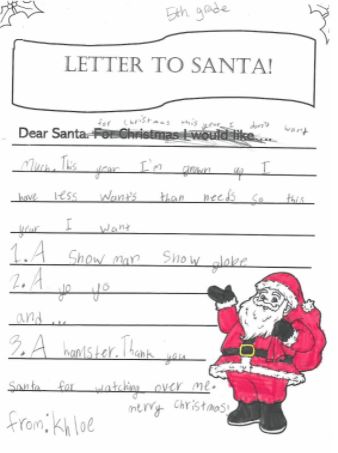 5th grade
LETTER TO SANTA!
for christmas this year I don't want
Dear Santa. For Christmas I would like...
Much. This year I'm grown up I
have less wants than needs so this
year I want
1. A Snow man Snow globe
2. A yo yo
and ...
3. A hamster. Thank you
Santa for watching over me.
merry christmas!
from: Khloe